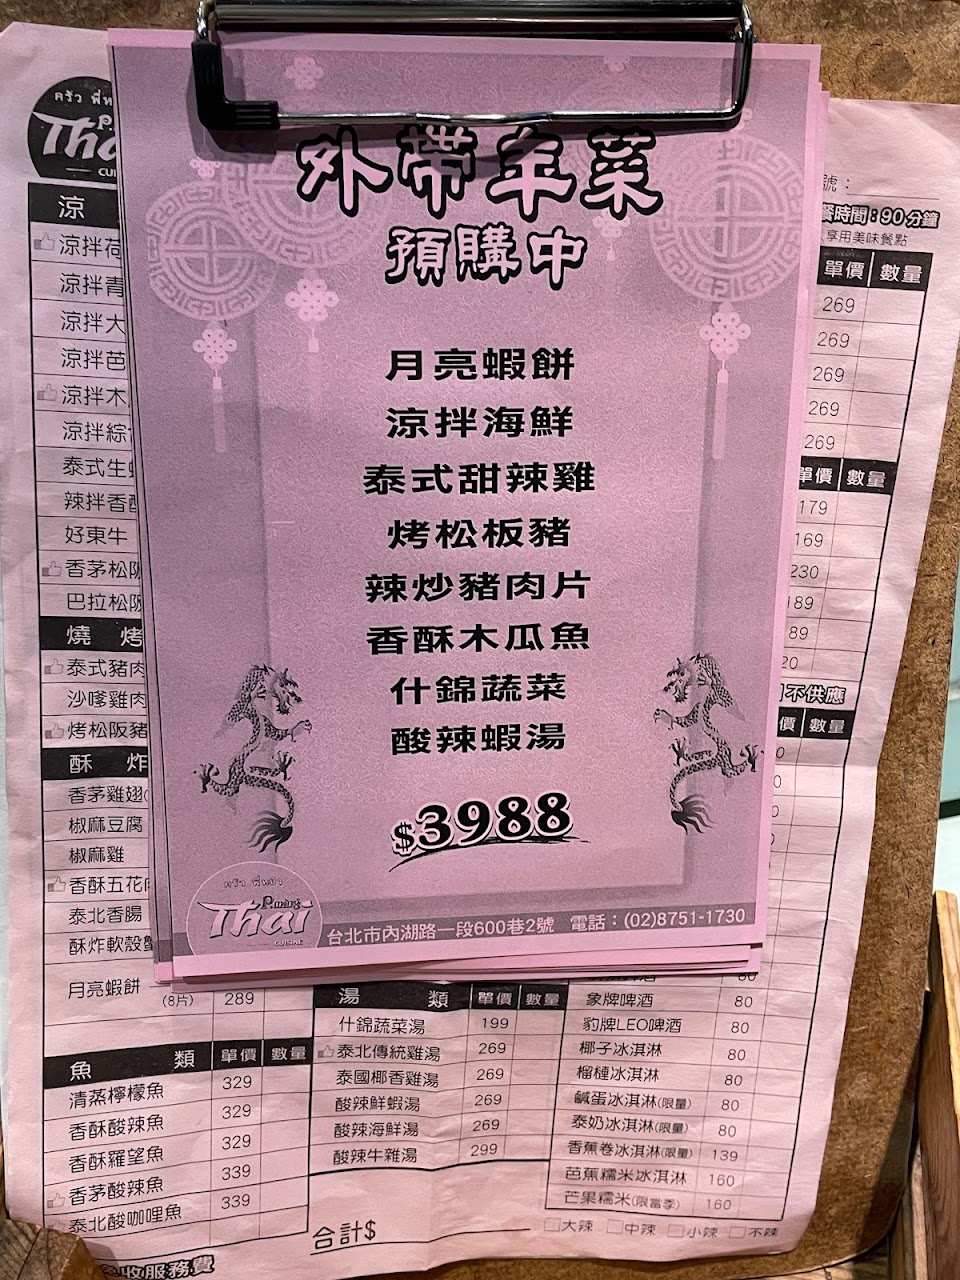 外帶年菜
預購中
月亮蝦餅
涼拌海鮮
泰式甜辣雞
烤松板豬
辣炒豬肉片
香酥木瓜魚
什錦蔬菜
酸辣蝦湯
$3988
Thai
CUISINE
台北市內湖路一段600巷2號 電話：(02)8751-1730
涼
涼拌
涼拌青
涼拌大
涼拌芭
涼拌木
涼拌綜
泰式生
辣拌香
好東牛
香茅松阪
巴拉松阪
燒 烤
泰式豬肉
沙嗲雞肉
烤松阪豬
酥 炸
香茅雞翅
椒麻豆腐
椒麻雞
香酥五花
泰北香腸
酥炸軟殼
月亮蝦餅 (8片) 289
號：
時間：90分鐘
享用美味餐點
單價 數量
269
269
269
269
269
單價 數量
179
169
230
189
89
20
不供應
價 數量
魚 類 單價 數量
清蒸檸檬魚 329
香酥酸辣魚 329
香酥羅望魚 329
香茅酸辣魚 339
泰北酸咖哩魚 339
湯 類 單價 數量
什錦蔬菜湯 199
泰北傳統雞湯 269
泰國椰香雞湯 269
酸辣鮮蝦湯 269
酸辣海鮮湯 269
酸辣牛雜湯 299
合計$
80
象牌啤酒 80
豹牌LEO啤酒 80
椰子冰淇淋 80
榴槤冰淇淋 80
鹹蛋冰淇淋(限量) 80
泰奶冰淇淋(限量) 80
香蕉卷冰淇淋(限量) 139
芭蕉糯米冰淇淋 160
芒果糯米(限當季) 160
大辣 中辣 小辣 不辣
收服務費